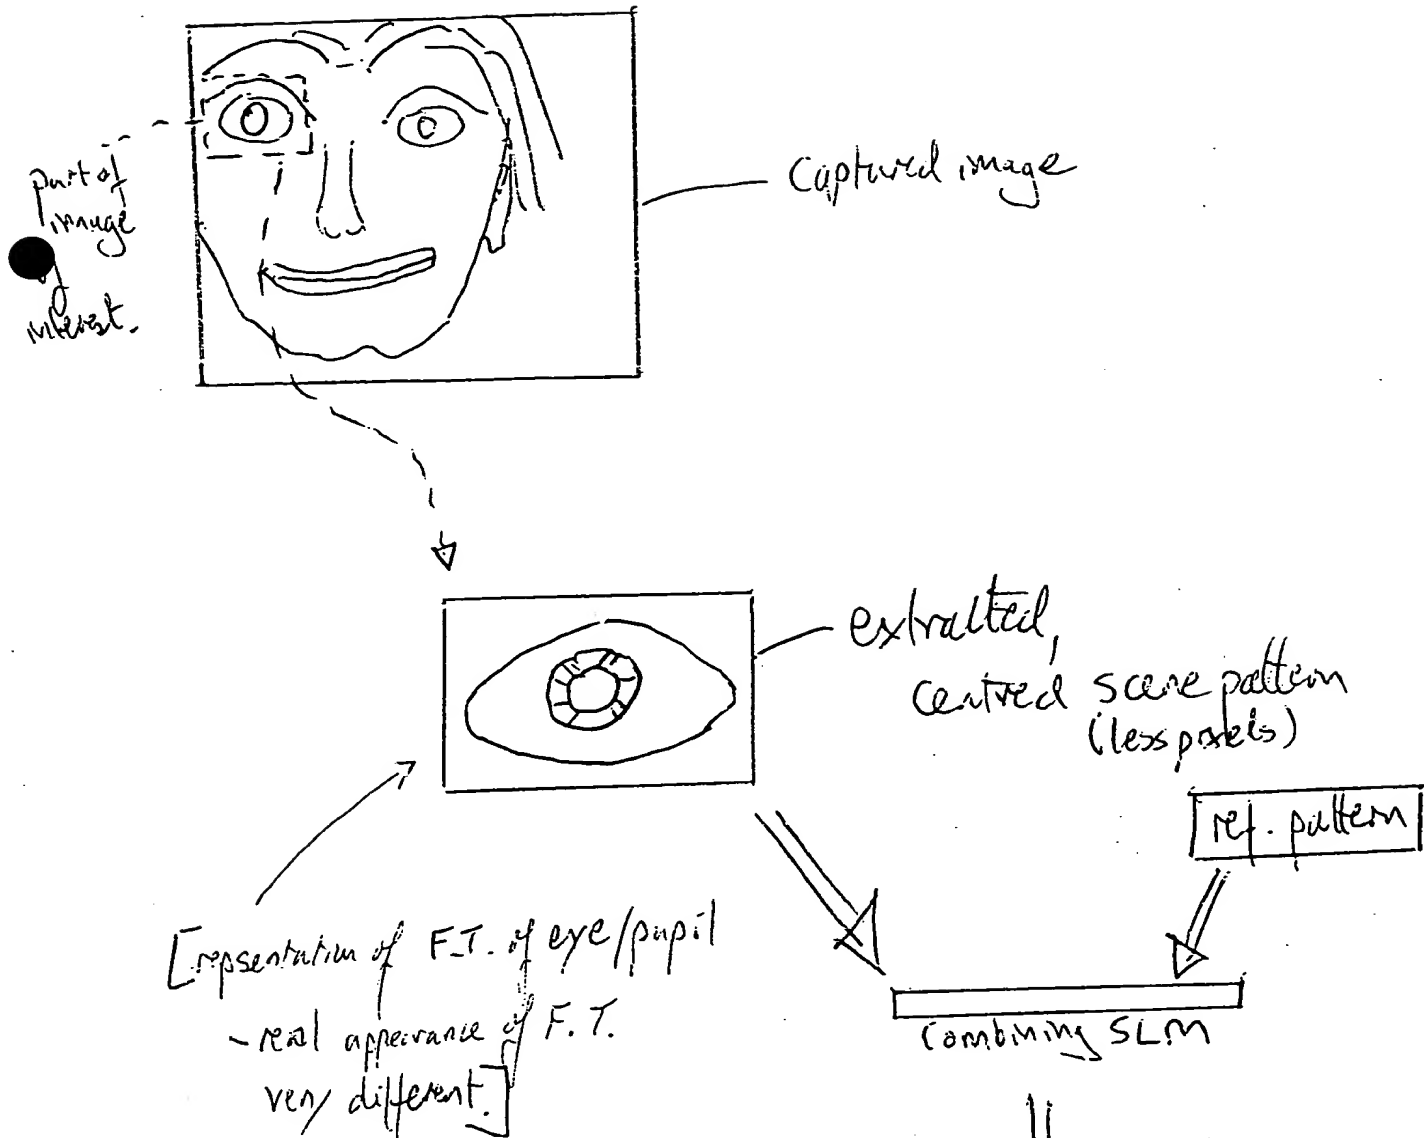 part of
image
of
interest.
Captured image
extracted,
centred scene pattern
(less pixels)
ref. pattern
[repsentation of F.T. of eye/pupil
- real appearance of F.T.
very different.]
Combining SLM